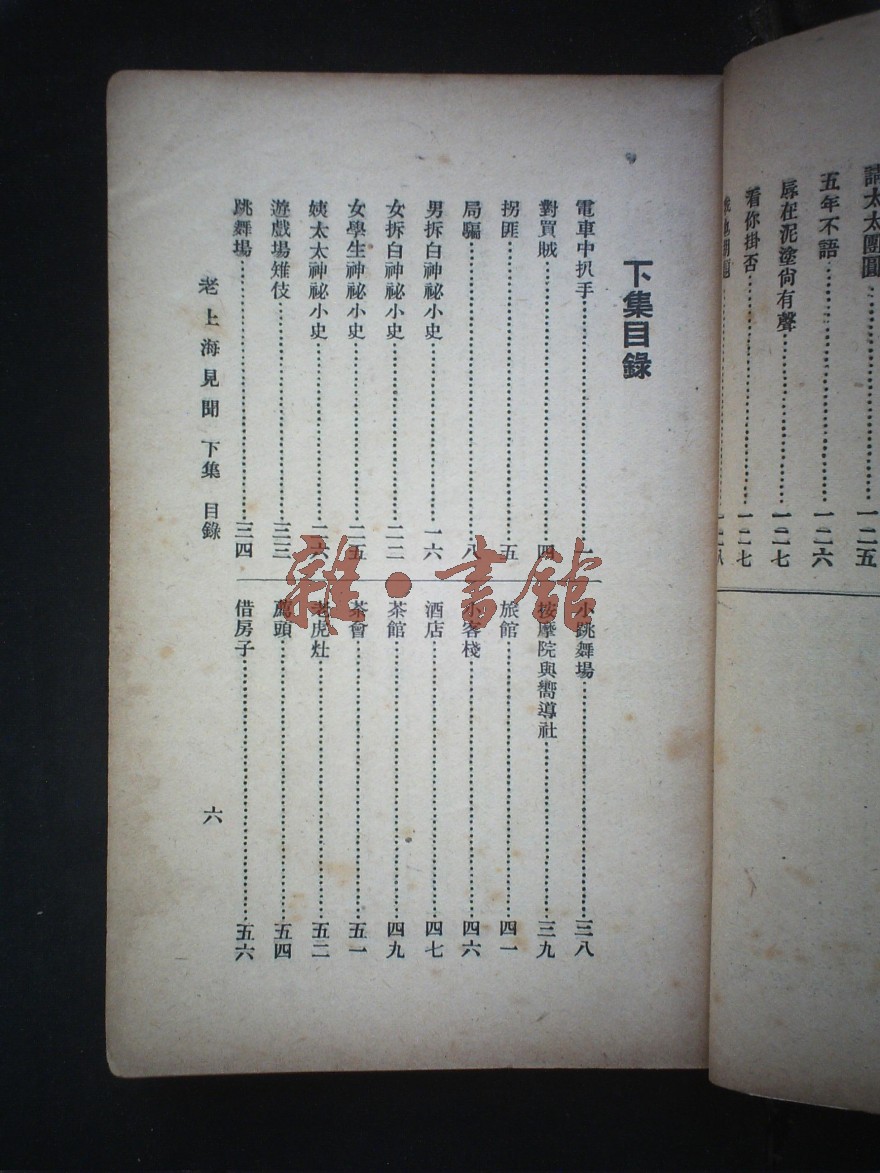 請太太團圓……一二五
五年不語……一二六
辱在泥塗尙有聲……一二七
看你掛否……一二七
……一二八
下集目錄
電車中扒手……一
對買賊……四
拐匪……五
局騙……八
男拆白神祕小史……一六
女拆白神祕小史……二二
女學生神祕小史……二五
姨太太神祕小史……二六
遊戲場雉伎……三三
跳舞場……三四
小跳舞場……三八
按摩院與嚮導社……三九
旅館……四一
小客棧……四六
酒店……四七
茶館……四九
茶會……五一
老虎灶……五二
薦頭……五四
借房子……五六
老上海見聞 下集 目錄 六
雜·書館